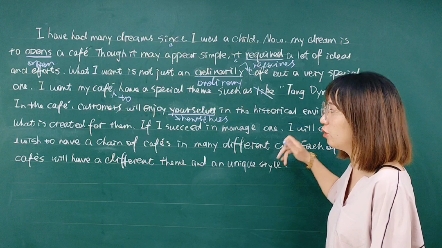 I have had many dreams since I was a child. Now my dream is
to opens a café. Though it may appear simple, it required a lot of ideas
open requires
and efforts. What I want is not just an ordinarily café but a very special
ordinary
one. I want my café have a special theme such as Tang
to
In the café, customers will enjoy yourselves in the historical
themselves
what is created for them. If I succeed in manage one, I will
I wish to have a chain of cafés in many different
cafés will have a different theme and an unique style